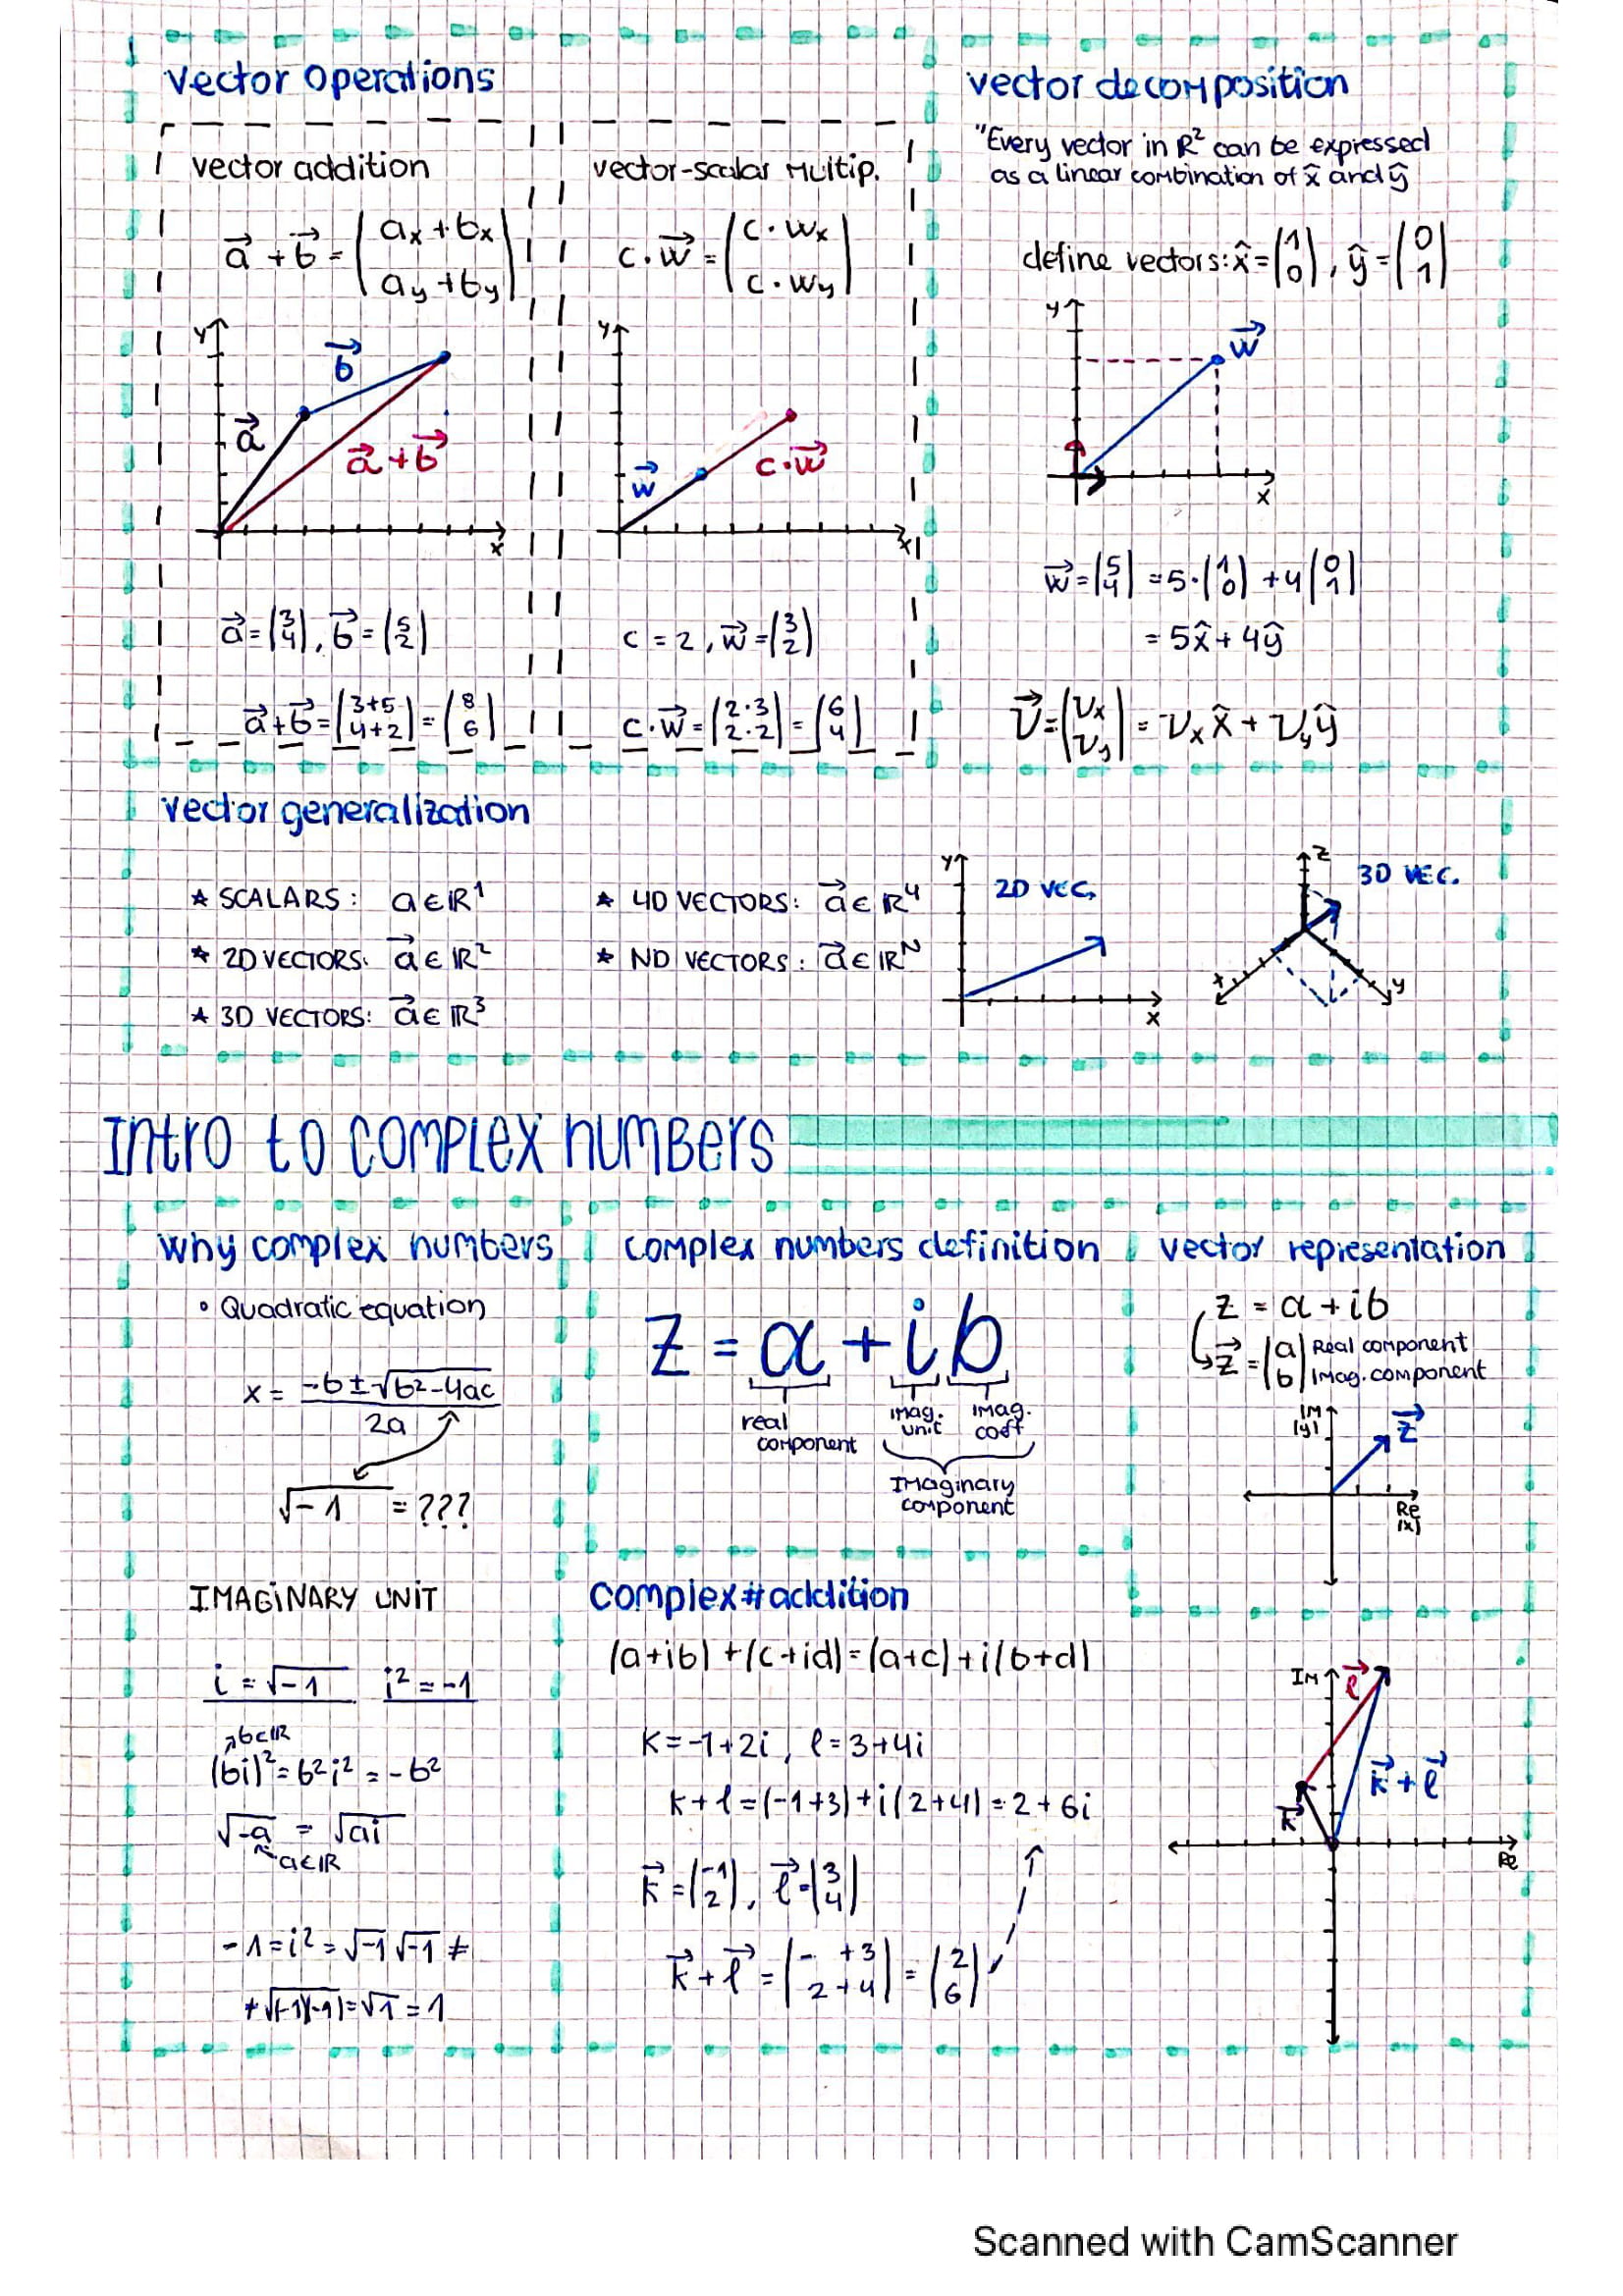 vector operations
vector addition
a⃗ + b⃗ = (ax + bx
ay + by)
y
b⃗
a⃗
a⃗ + b⃗
x
a⃗ = (3 4), b⃗ = (5 2)
a⃗ + b⃗ = (3+5 4+2) = (8 6)
vector-scalar multip.
c · w⃗ = (c · wx
c · wy)
y
w⃗
c · w⃗
x
c = 2, w⃗ = (3 2)
c · w⃗ = (2·3 2·2) = (6 4)
vector decomposition
"Every vector in ℝ² can be expressed
as a linear combination of x̂ and ŷ
define vectors: x̂ = (1 0), ŷ = (0 1)
y
w⃗
x
w⃗ = (5 4) = 5·(1 0) + 4(0 1)
= 5x̂ + 4ŷ
v⃗ = (vx vy) = vx x̂ + vy ŷ
vector generalization
* SCALARS: a ∈ ℝ¹
* 2D VECTORS: a⃗ ∈ ℝ²
* 3D VECTORS: a⃗ ∈ ℝ³
* 4D VECTORS: a⃗ ∈ ℝ⁴
* ND VECTORS: a⃗ ∈ ℝᴺ
y
2D VEC.
x
z
3D VEC.
x
y
Intro to complex numbers
why complex numbers
• Quadratic equation
x = (-b ± √(b²-4ac)) / 2a
√-1 = ???
IMAGINARY UNIT
i = √-1 i² = -1
b ∈ ℝ
(bi)² = b²i² = -b²
√-a = √a i
a ∈ ℝ
-1 = i² = √-1 √-1 ≠
≠ √(-1)(-1) = √1 = 1
complex numbers definition
z = a + ib
real
component
imag.
unit
imag.
coeff
Imaginary
component
vector representation
z = a + ib
z⃗ = (a b) Real component
Imag. component
Im
(y)
z⃗
Re
(x)
complex # addition
(a+ib) + (c+id) = (a+c) + i(b+d)
k = -1+2i, l = 3+4i
k + l = (-1+3) + i(2+4) = 2 + 6i
k⃗ = (-1 2), l⃗ = (3 4)
k⃗ + l⃗ = (- +3 2+4) = (2 6)
Im
l⃗
k⃗ + l⃗
k⃗
Re
Scanned with CamScanner